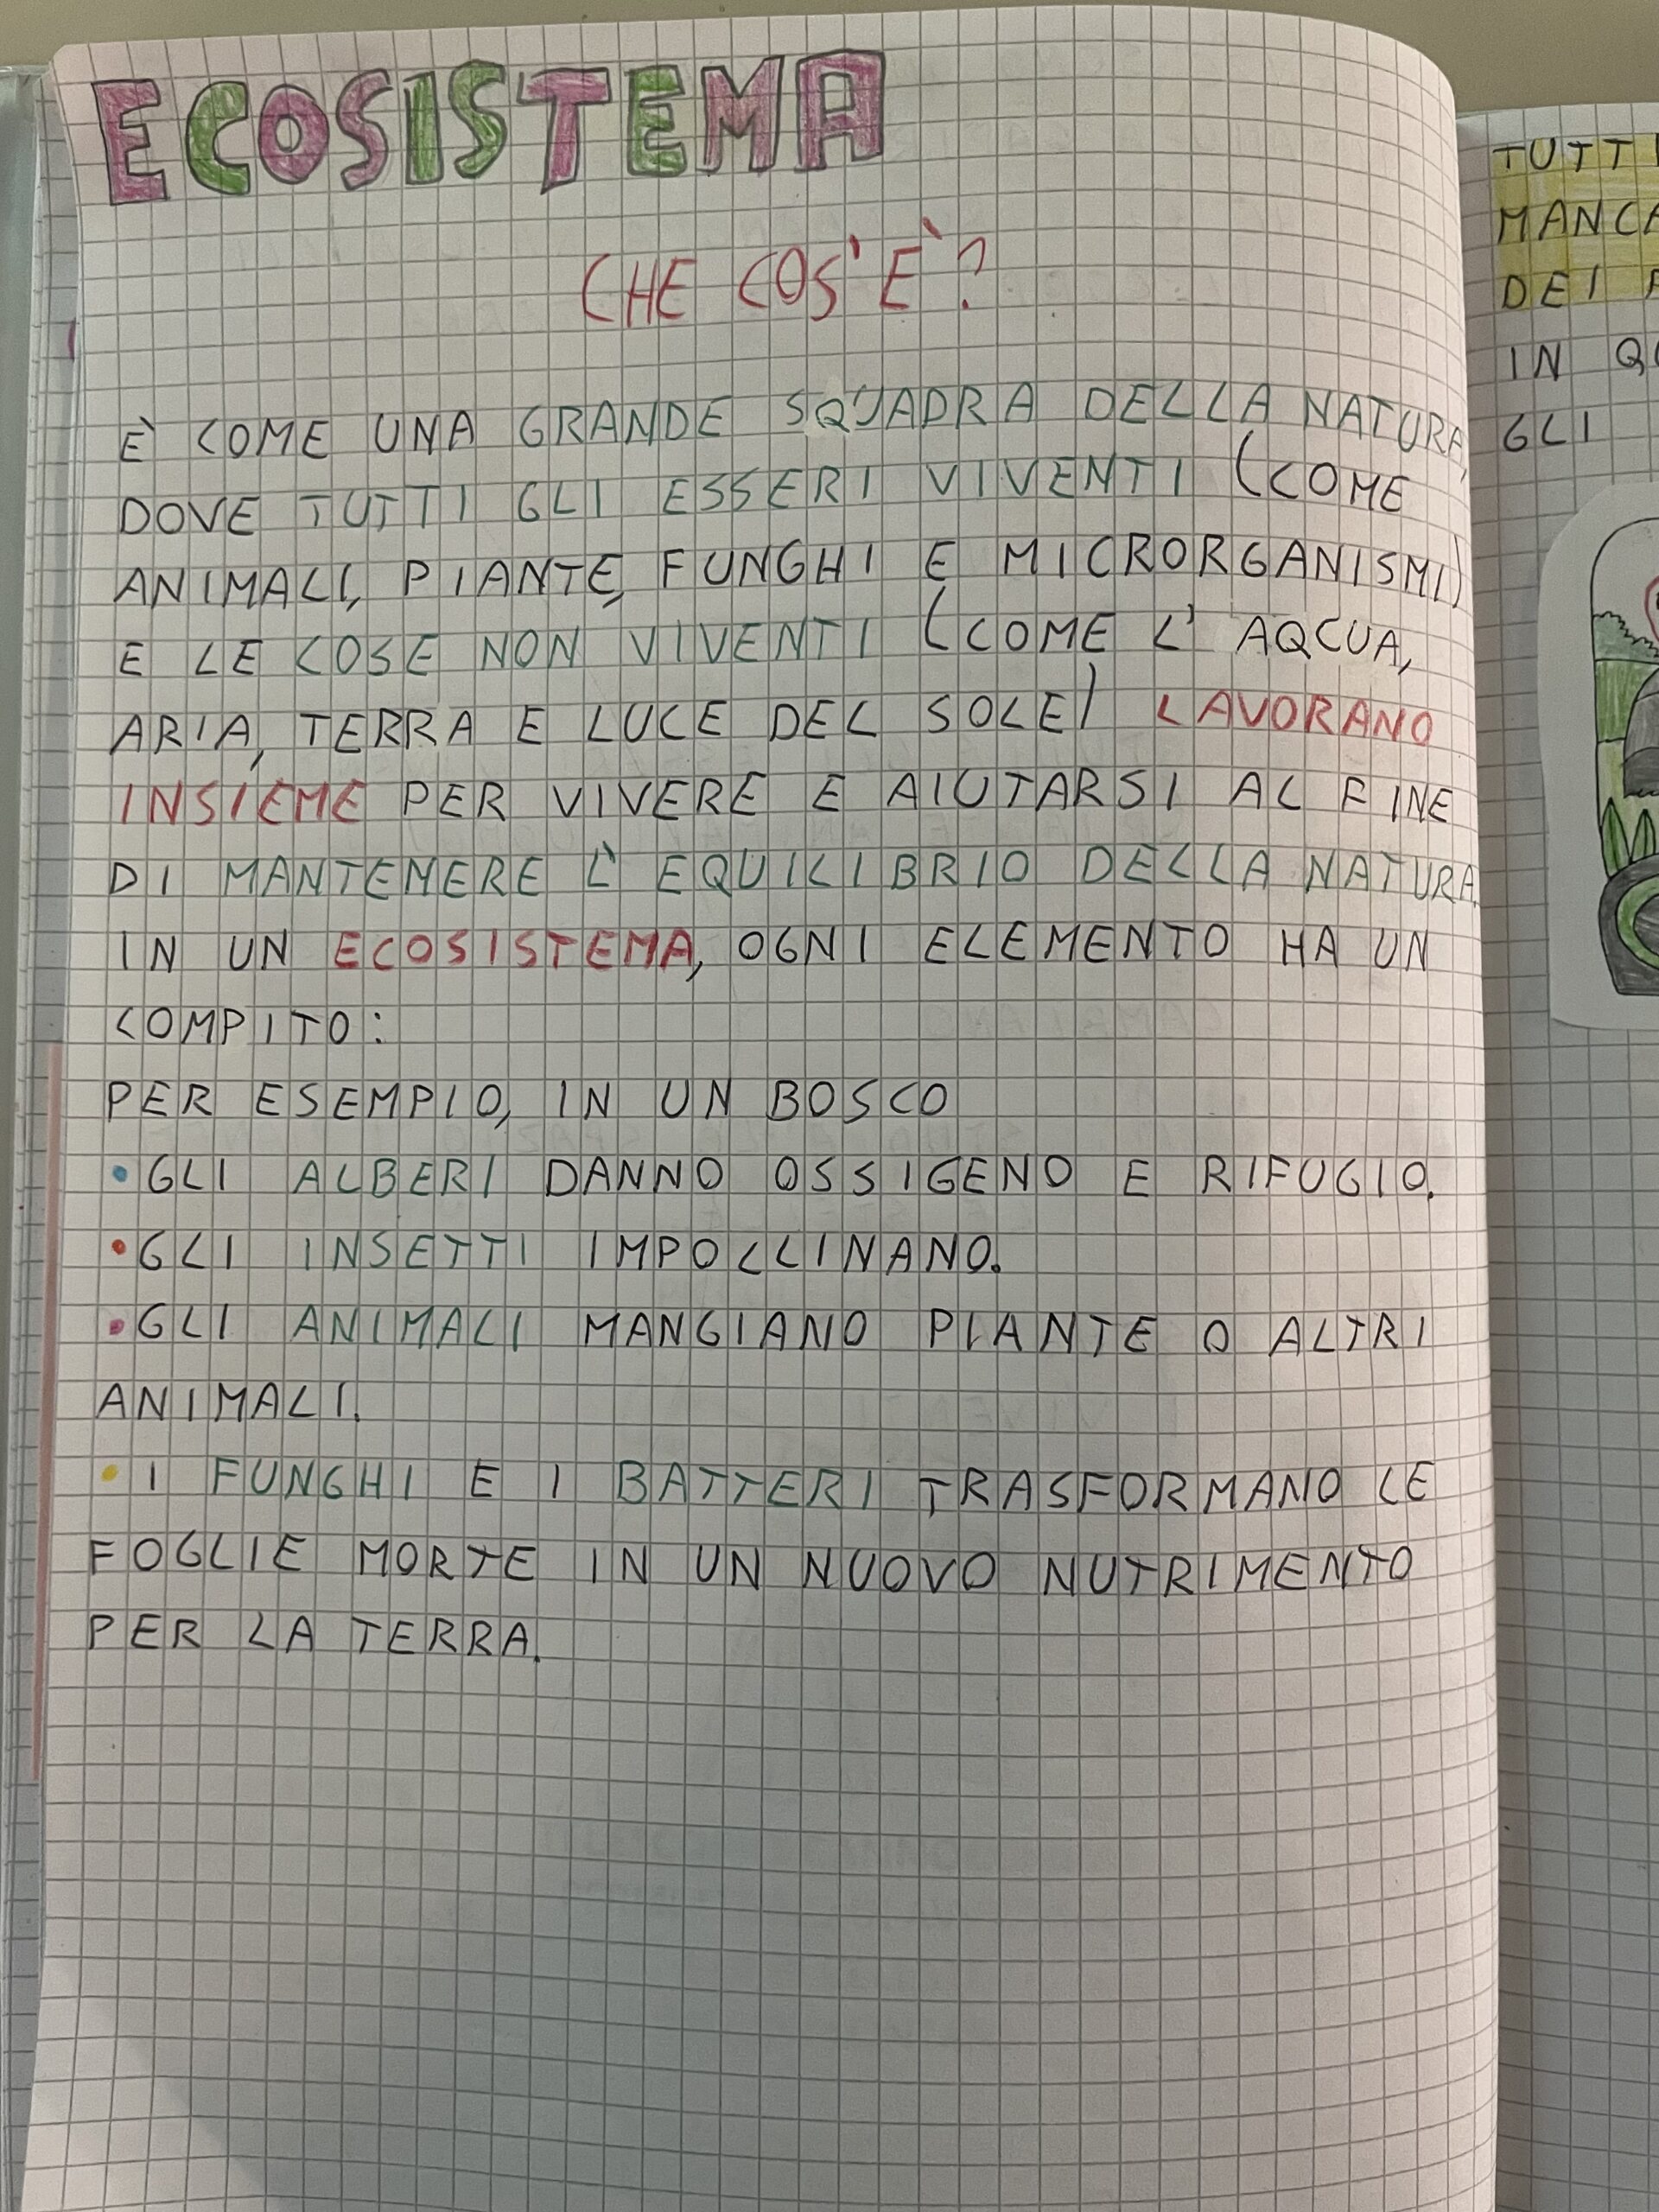 ECOSISTEMA
CHE COS'È?
È COME UNA GRANDE SQUADRA DELLA NATURA,
DOVE TUTTI GLI ESSERI VIVENTI (COME
ANIMALI, PIANTE, FUNGHI E MICRORGANISMI)
E LE COSE NON VIVENTI (COME L' AQCUA,
ARIA, TERRA E LUCE DEL SOLE) LAVORANO
INSIEME PER VIVERE E AIUTARSI AL FINE
DI MANTENERE L' EQUILIBRIO DELLA NATURA.
IN UN ECOSISTEMA, OGNI ELEMENTO HA UN
COMPITO:
PER ESEMPIO, IN UN BOSCO
• GLI ALBERI DANNO OSSIGENO E RIFUGIO.
• GLI INSETTI IMPOLLINANO.
• GLI ANIMALI MANGIANO PIANTE O ALTRI
ANIMALI.
• I FUNGHI E I BATTERI TRASFORMANO LE
FOGLIE MORTE IN UN NUOVO NUTRIMENTO
PER LA TERRA.
TUTTI
DEI
IN
GLI